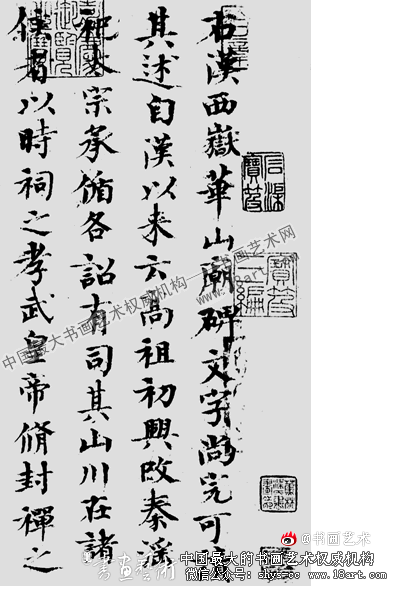 右漢西嶽華山廟碑文字尚完可
其述自漢以来云高祖初興改秦淫
祀太宗承循各詔有司其山川在諸
侯者以時祠之孝武皇帝脩封禪之
中国最大书画艺术权威机构—书画艺术网
www.18art.com
@书画艺术
中国最大的书画艺术权威机构
微信公众号: shys-ccc www.18art.com